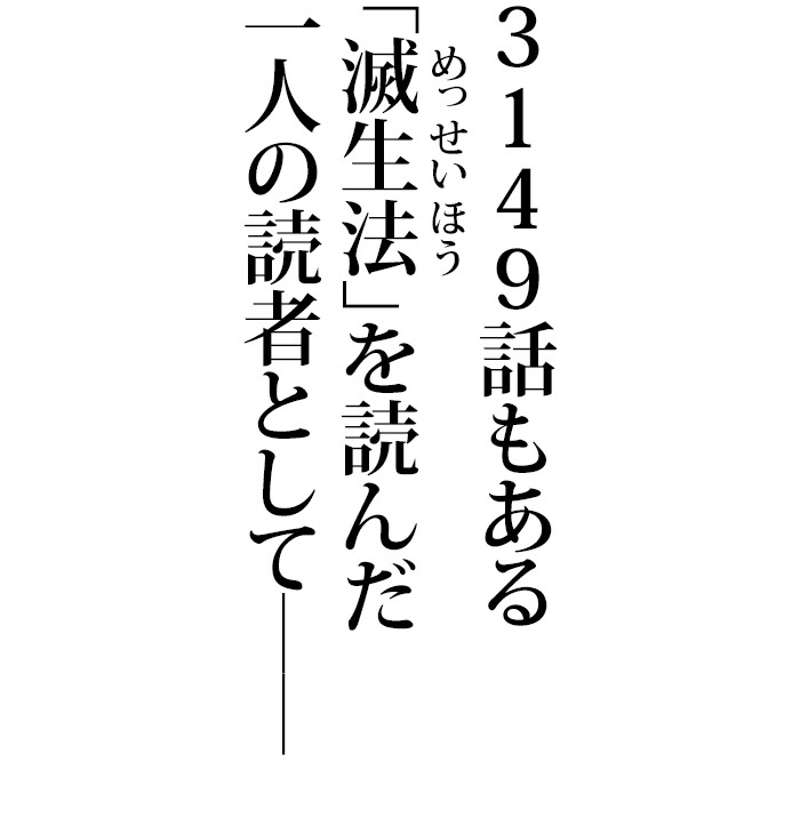 3149話もある
「滅生法」を読んだ
めっせいほう
一人の読者として――